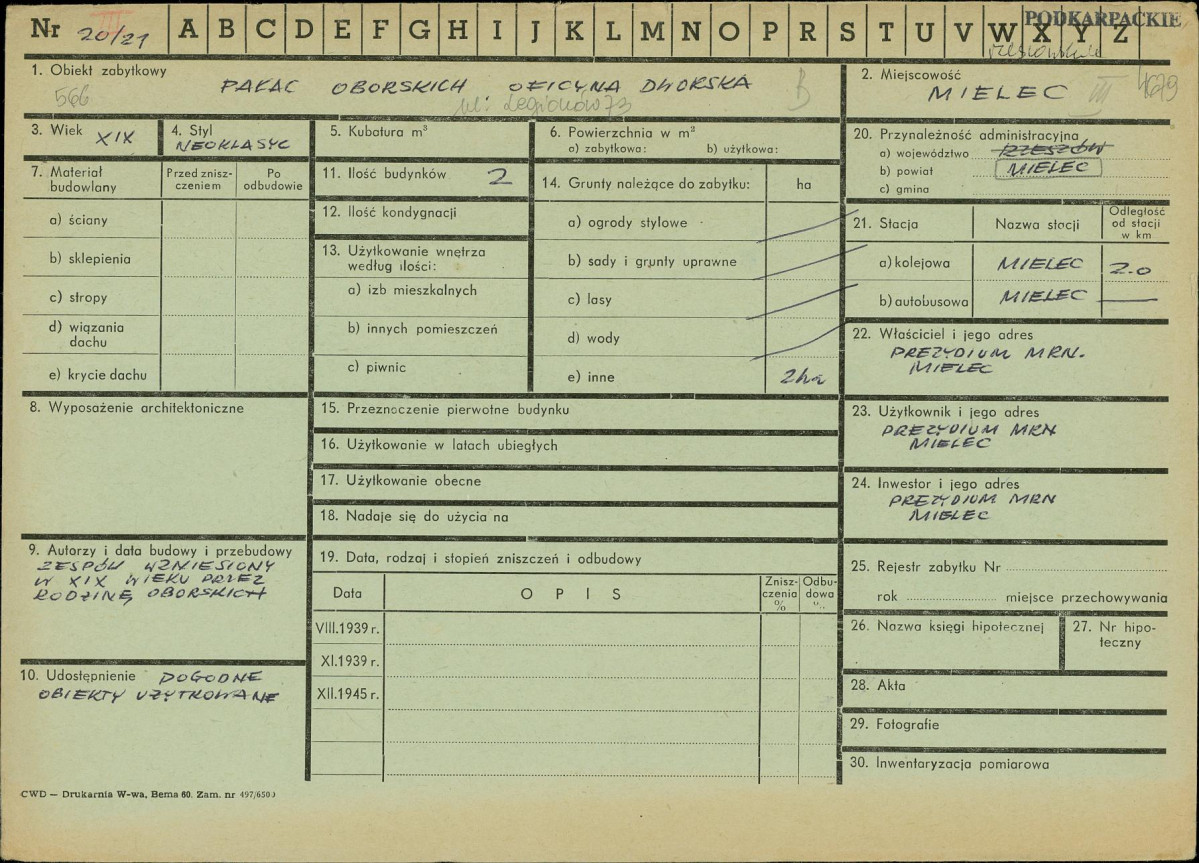 Nr 20/21 A B C D E F G H I J K L M N O P R S T U V W X Y Z PODKARPACKIE
III
1. Obiekt zabytkowy PAŁAC OBORSKICH OFICYNA DWORSKA B
566 ul: Legionów 73
2. Miejscowość
MIELEC III
3. Wiek XIX
4. Styl
NEOKLASYC
5. Kubatura m³
6. Powierzchnia w m²
a) zabytkowa: b) użytkowa:
7. Materiał budowlany
Przed znisz-
czeniem
Po
odbudowie
a) ściany
b) sklepienia
c) stropy
d) wiązania
dachu
e) krycie dachu
11. Ilość budynków 2
12. Ilość kondygnacji
13. Użytkowanie wnętrza
według ilości:
a) izb mieszkalnych
b) innych pomieszczeń
c) piwnic
14. Grunty należące do zabytku: ha
a) ogrody stylowe
b) sady i grunty uprawne
c) lasy
d) wody
e) inne 2ha
8. Wyposażenie architektoniczne
9. Autorzy i data budowy i przebudowy
ZESPÓŁ WZNIESIONY
W XIX WIEKU PRZEZ
RODZINĘ OBORSKICH
10. Udostępnienie DOGODNE
OBIEKTY UŻYTKOWANE
15. Przeznoczenie pierwotne budynku
16. Użytkowanie w latach ubiegłych
17. Użytkowanie obecne
18. Nadaje się do użycia na
19. Data, rodzaj i stopień zniszczeń i odbudowy
Data OPIS
Znisz-
czenia
%
Odbu-
dowa
VIII.1939 r.
XI.1939 r.
XII.1945 r.
20. Przynależność administracyjna
a) województwo RZESZÓW
b) powiat MIELEC
c) gmina
21. Stacja Nazwa stacji
Odległość
od stacji
w km
a) kolejowa MIELEC 2.0
b) autobusowa MIELEC —
22. Właściciel i jego adres
PREZYDIUM MRN.
MIELEC
23. Użytkownik i jego adres
PREZYDIUM MRN
MIELEC
24. Inwestor i jego adres
PREZYDIUM MRN
MIELEC
25. Rejestr zabytku Nr
rok miejsce przechowywania
26. Nazwa księgi hipotecznej
27. Nr hipo-
teczny
28. Akta
29. Fotografie
30. Inwentaryzacja pomiarowa
CWD — Drukarnia W-wa, Bema 60. Zam. nr 497/650